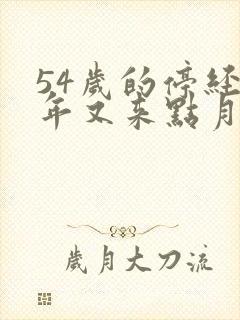 54歲的停經
年又来點月
歲月大刀流